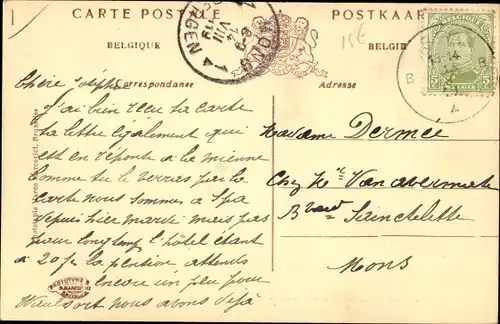 CARTE POSTALE
POSTKAART
BELGIQUE
BELGIË
Correspondance
Adresse
MONS
BERGEN
VIII
13-14
B
B
5
15€
Chère Josèphe
J'ai bien reçu ta carte
ta lettre également qui
est en réponse à la mienne
Comme tu le verras par la
carte nous sommes à Spa
depuis hier mardi mais pas
pour longtemps l'hôtel étant
à 20 fr la pension attends
encore un peu pour
nous avons déjà
Madame Dermee
Chez Mr Vanavermaete
Bvard Sainctelette
Mons